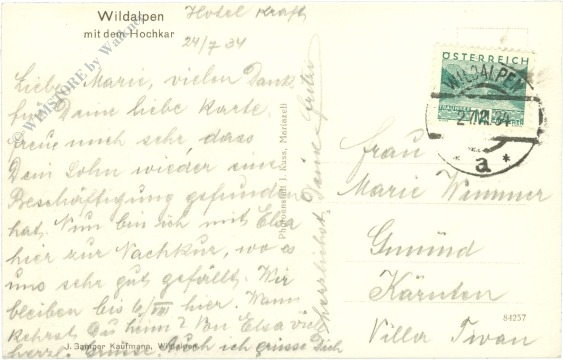 Wildalpen
mit dem Hochkar
Hotel Kraft
24/7 34
Liebe Marie, vielen Dank
für Deine liebe Karte.
Freue mich sehr, dass
Dein Sohn wieder eine
Beschäftigung gefunden
hat. Nun bin ich mit Elsa
hier zur Nachkur, wo es
uns sehr gut gefällt. Wir
bleiben bis 6/VIII hier. Wann
kehrst Du heim? Von Elsa viel
herzl. Grüsse. Auch ich grüsse Dich
herzlichst, Deine
J. Samper Kaufmann, Wildalpen
Photoanstalt J. Kuss, Mariazell
ÖSTERREICH
WILDALPEN
34
* a *
Frau
Marie Wimmer
Gmünd
Kärnten
Villa Iwan
84257